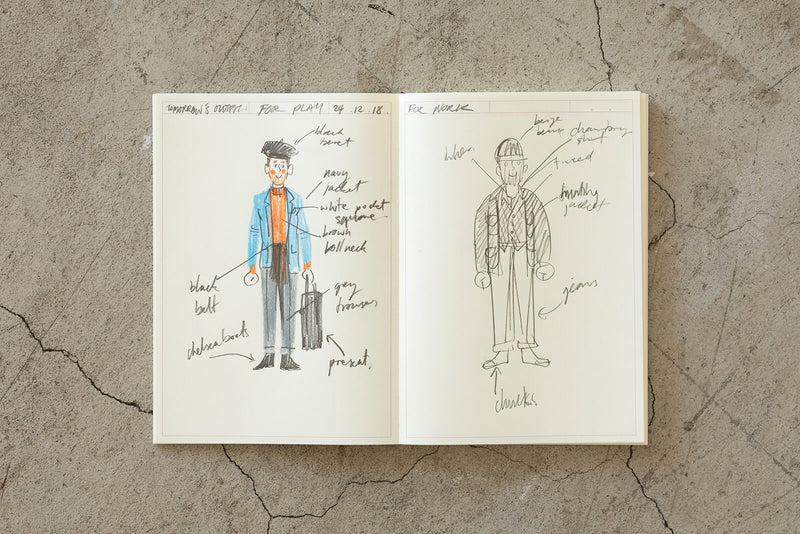 TOMORROW'S OUTFIT. FOR PLAY 24.12.18.
black
beret
navy
jacket
white pocket
square
brown
rollneck
black
belt
grey
trousers
chelsea boots
present.
FOR WORK
beige
chambray
shirt
tweed
jacket
jeans